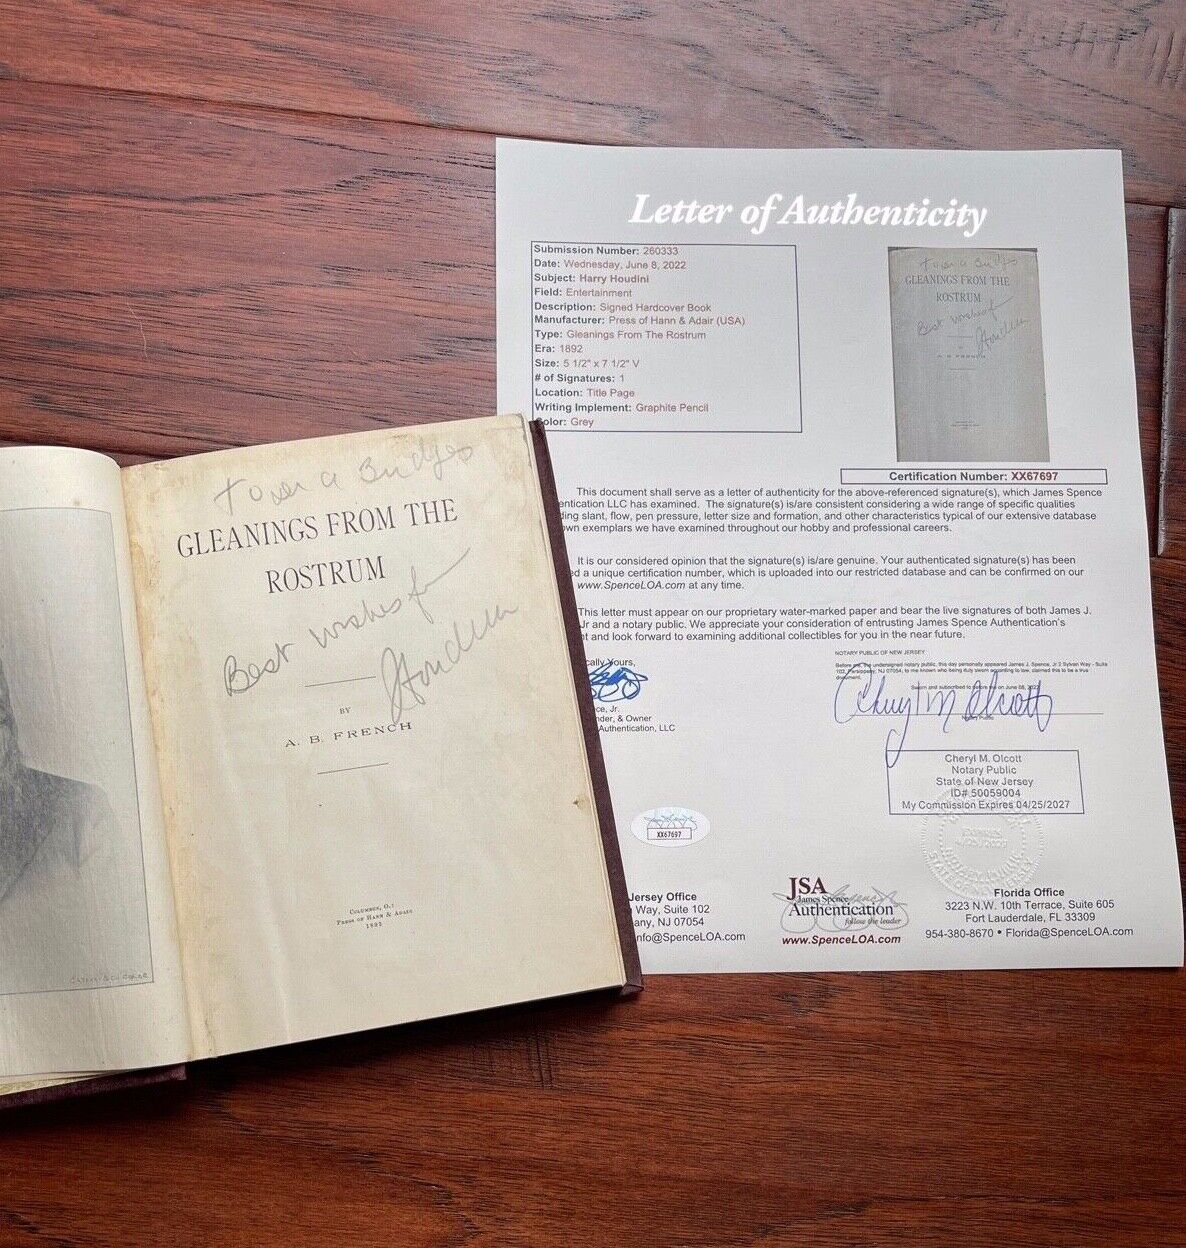 Letter of Authenticity
Submission Number: 260333
Date: Wednesday, June 8, 2022
Subject: Harry Houdini
Field: Entertainment
Description: Signed Hardcover Book
Manufacturer: Press of Hann & Adair (USA)
Type: Gleanings From The Rostrum
Era: 1892
Size: 5 1/2" x 7 1/2" V
# of Signatures: 1
Location: Title Page
Writing Implement: Graphite Pencil
Color: Grey
GLEANINGS FROM THE
ROSTRUM
Best wishes
A. B. FRENCH
Certification Number: XX67697
This document shall serve as a letter of authenticity for the above-referenced signature(s), which James Spence
entication LLC has examined. The signature(s) is/are consistent considering a wide range of specific qualities
ding slant, flow, pen pressure, letter size and formation, and other characteristics typical of our extensive database
own exemplars we have examined throughout our hobby and professional careers.
It is our considered opinion that the signature(s) is/are genuine. Your authenticated signature(s) has been
ed a unique certification number, which is uploaded into our restricted database and can be confirmed on our
www.SpenceLOA.com at any time.
This letter must appear on our proprietary water-marked paper and bear the live signatures of both James J.
Jr and a notary public. We appreciate your consideration of entrusting James Spence Authentication's
nt and look forward to examining additional collectibles for you in the near future.
cally Yours,
ce, Jr.
nder, & Owner
Authentication, LLC
NOTARY PUBLIC OF NEW JERSEY
Before me, the undersigned notary public, this day personally appeared James J. Spence, Jr 2 Sylvan Way - Suite
102, Parsippany, NJ 07054, to me known who being duly sworn according to law, claimed this to be a true
document.
Sworn and subscribed to before me on June 08, 2022
Cheryl M Olcott
Notary Public
Cheryl M. Olcott
Notary Public
State of New Jersey
ID# 50059004
My Commission Expires 04/25/2027
XX67697
Jersey Office
Way, Suite 102
any, NJ 07054
info@SpenceLOA.com
JSA
James Spence
Authentication
follow the leader
www.SpenceLOA.com
Florida Office
3223 N.W. 10th Terrace, Suite 605
Fort Lauderdale, FL 33309
954-380-8670 • Florida@SpenceLOA.com
GLEANINGS FROM THE
ROSTRUM
Best wishes
Houdini
BY
A. B. FRENCH
COLUMBUS, O.:
PRESS OF HANN & ADAIR
1892